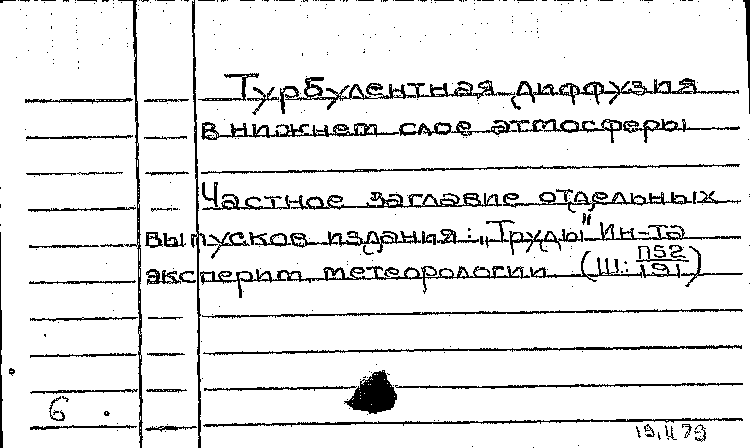 Турбулентная диффузия
в нижнем слое атмосферы
Частное заглавие отдельных
выпусков издания: „Труды" Ин-та
эксперим. метеорологии (III: П52/191)
6.
19.II 79